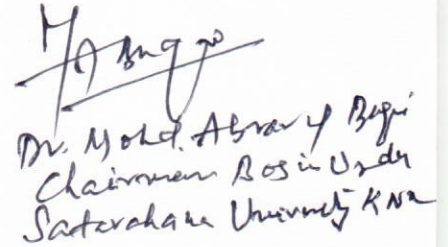 Dr. Mohd. Abrar ul Baqi
Chairman Bos in Urdu
Satavahana University KNR